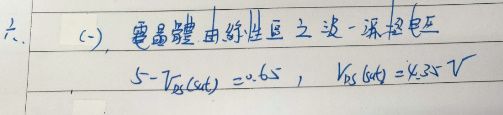 六、 (一) 電晶體由線性區之汲-源極电压
5-V_DS(sat) = 0.65 , V_DS(sat) = 4.35 V